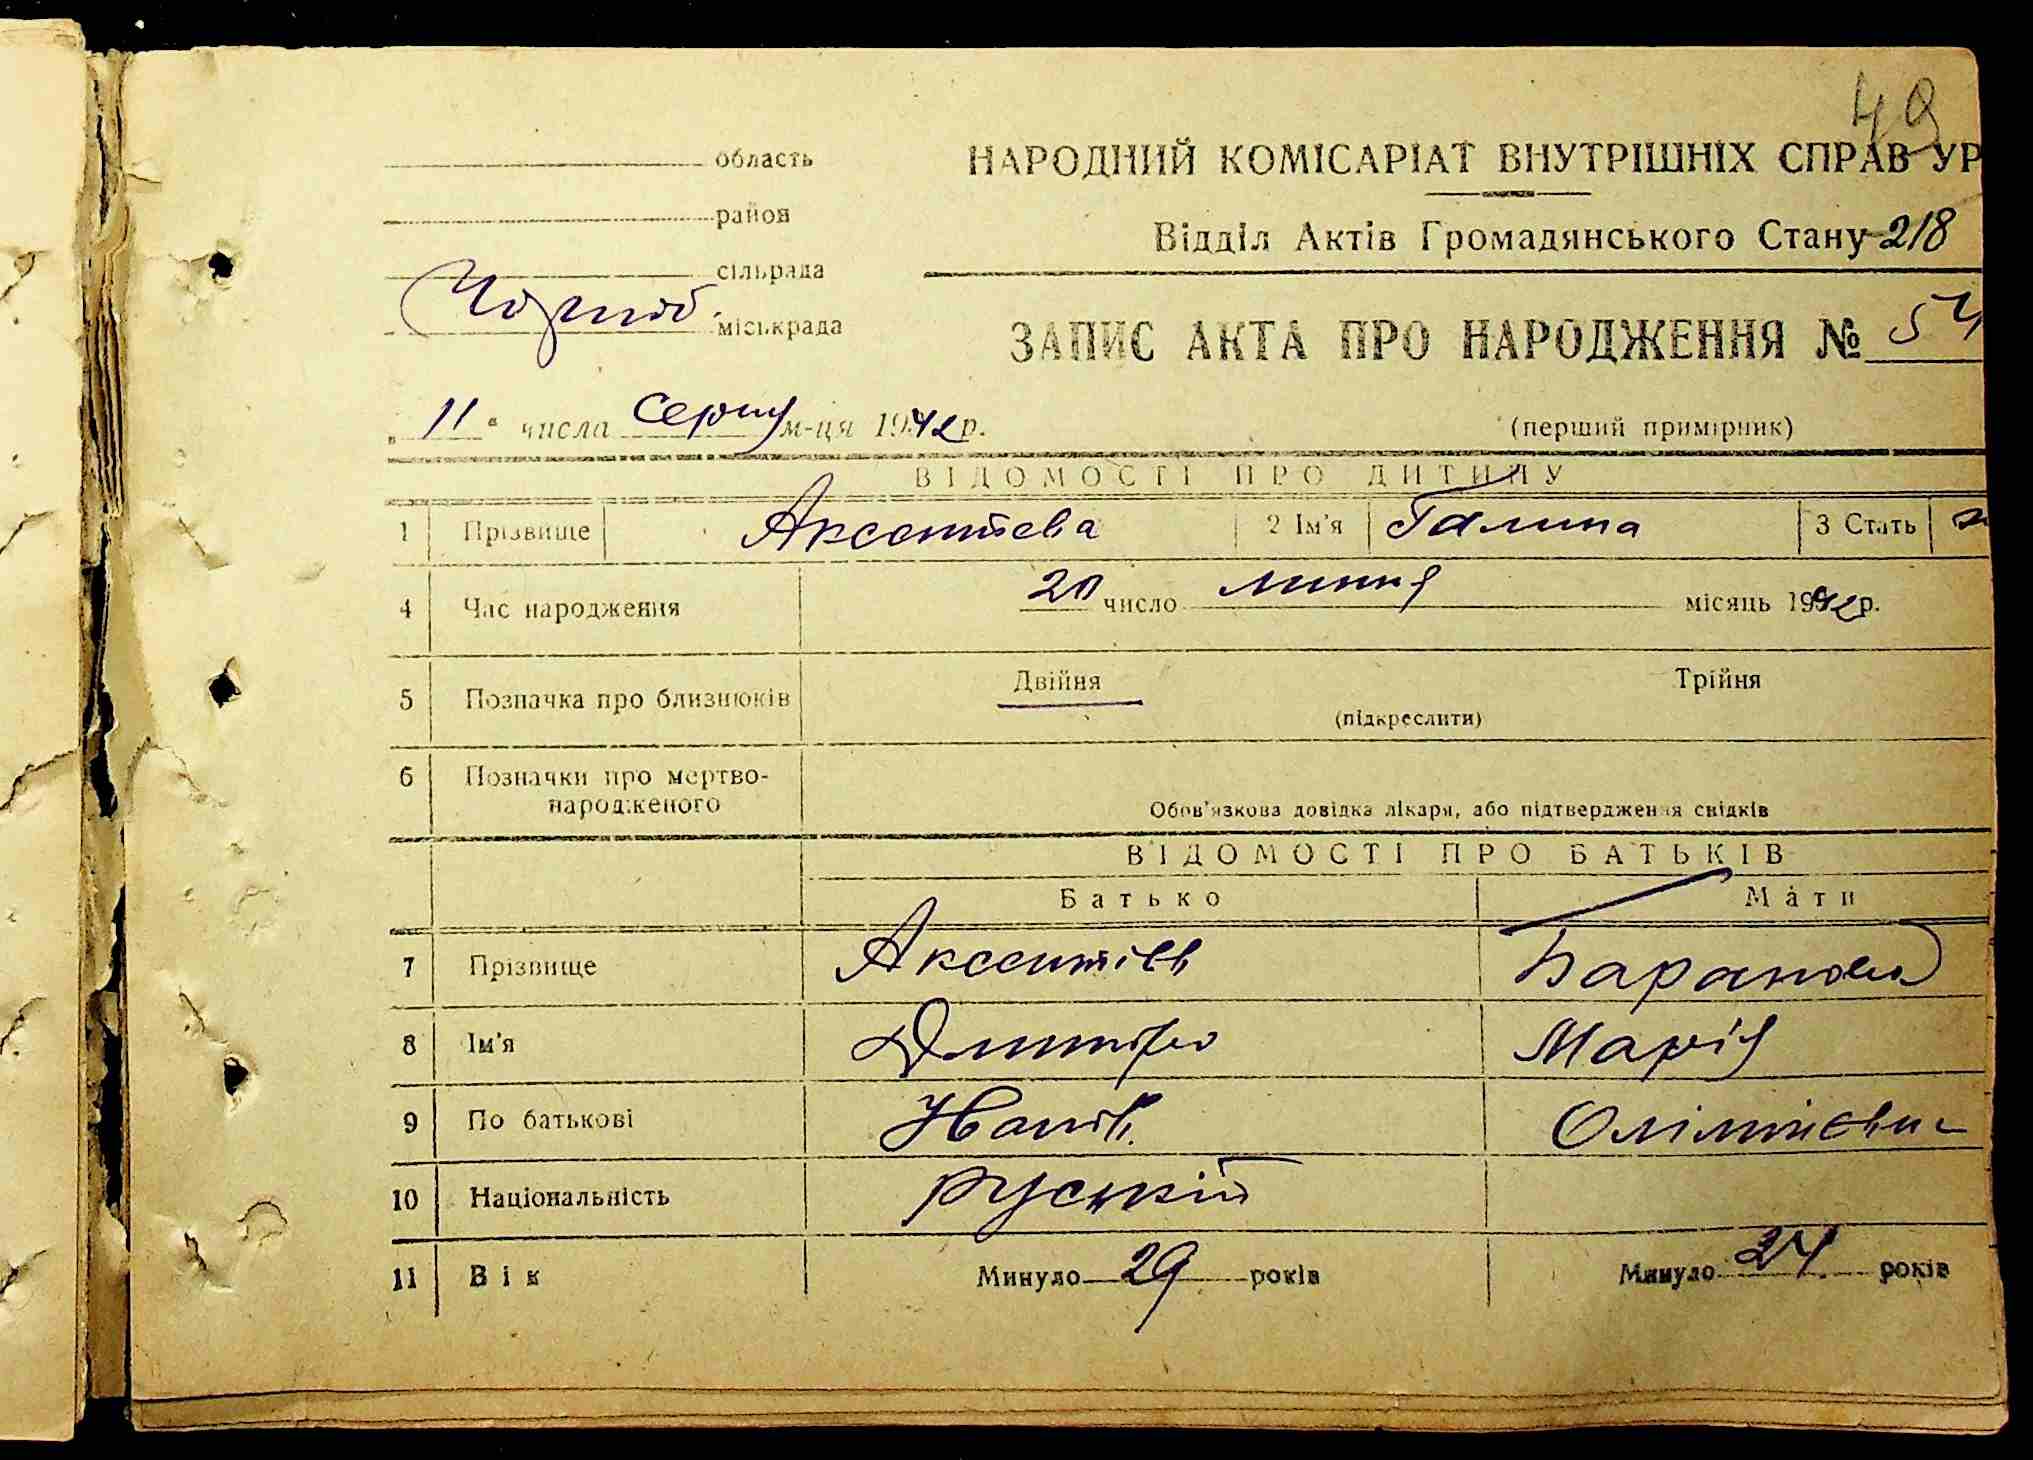 49
область
НАРОДНИЙ КОМІСАРІАТ ВНУТРІШНІХ СПРАВ УР
район
Відділ Актів Громадянського Стану 218
сільрада
міськрада
ЗАПИС АКТА ПРО НАРОДЖЕННЯ № 54
„ 11 " числа серпня м-ця 1942 р.
(перший примірник)
ВІДОМОСТІ ПРО ДИТИНУ
1 Прізвище Аксентєва 2 Ім'я Галина 3 Стать
4 Час народження 20 число липня місяць 1942 р.
5 Позначка про близнюків Двійня Трійня
(підкреслити)
6 Позначки про мертво-
народженого
Обов'язкова довідка лікаря, або підтвердження свідків
ВІДОМОСТІ ПРО БАТЬКІВ
Батько Мати
7 Прізвище Аксентієв Баранова
8 Ім'я Дмитро Марія
9 По батькові Іванів. Олімпієвна
10 Національність руський
11 Вік Минуло 29 років Минуло 24 років